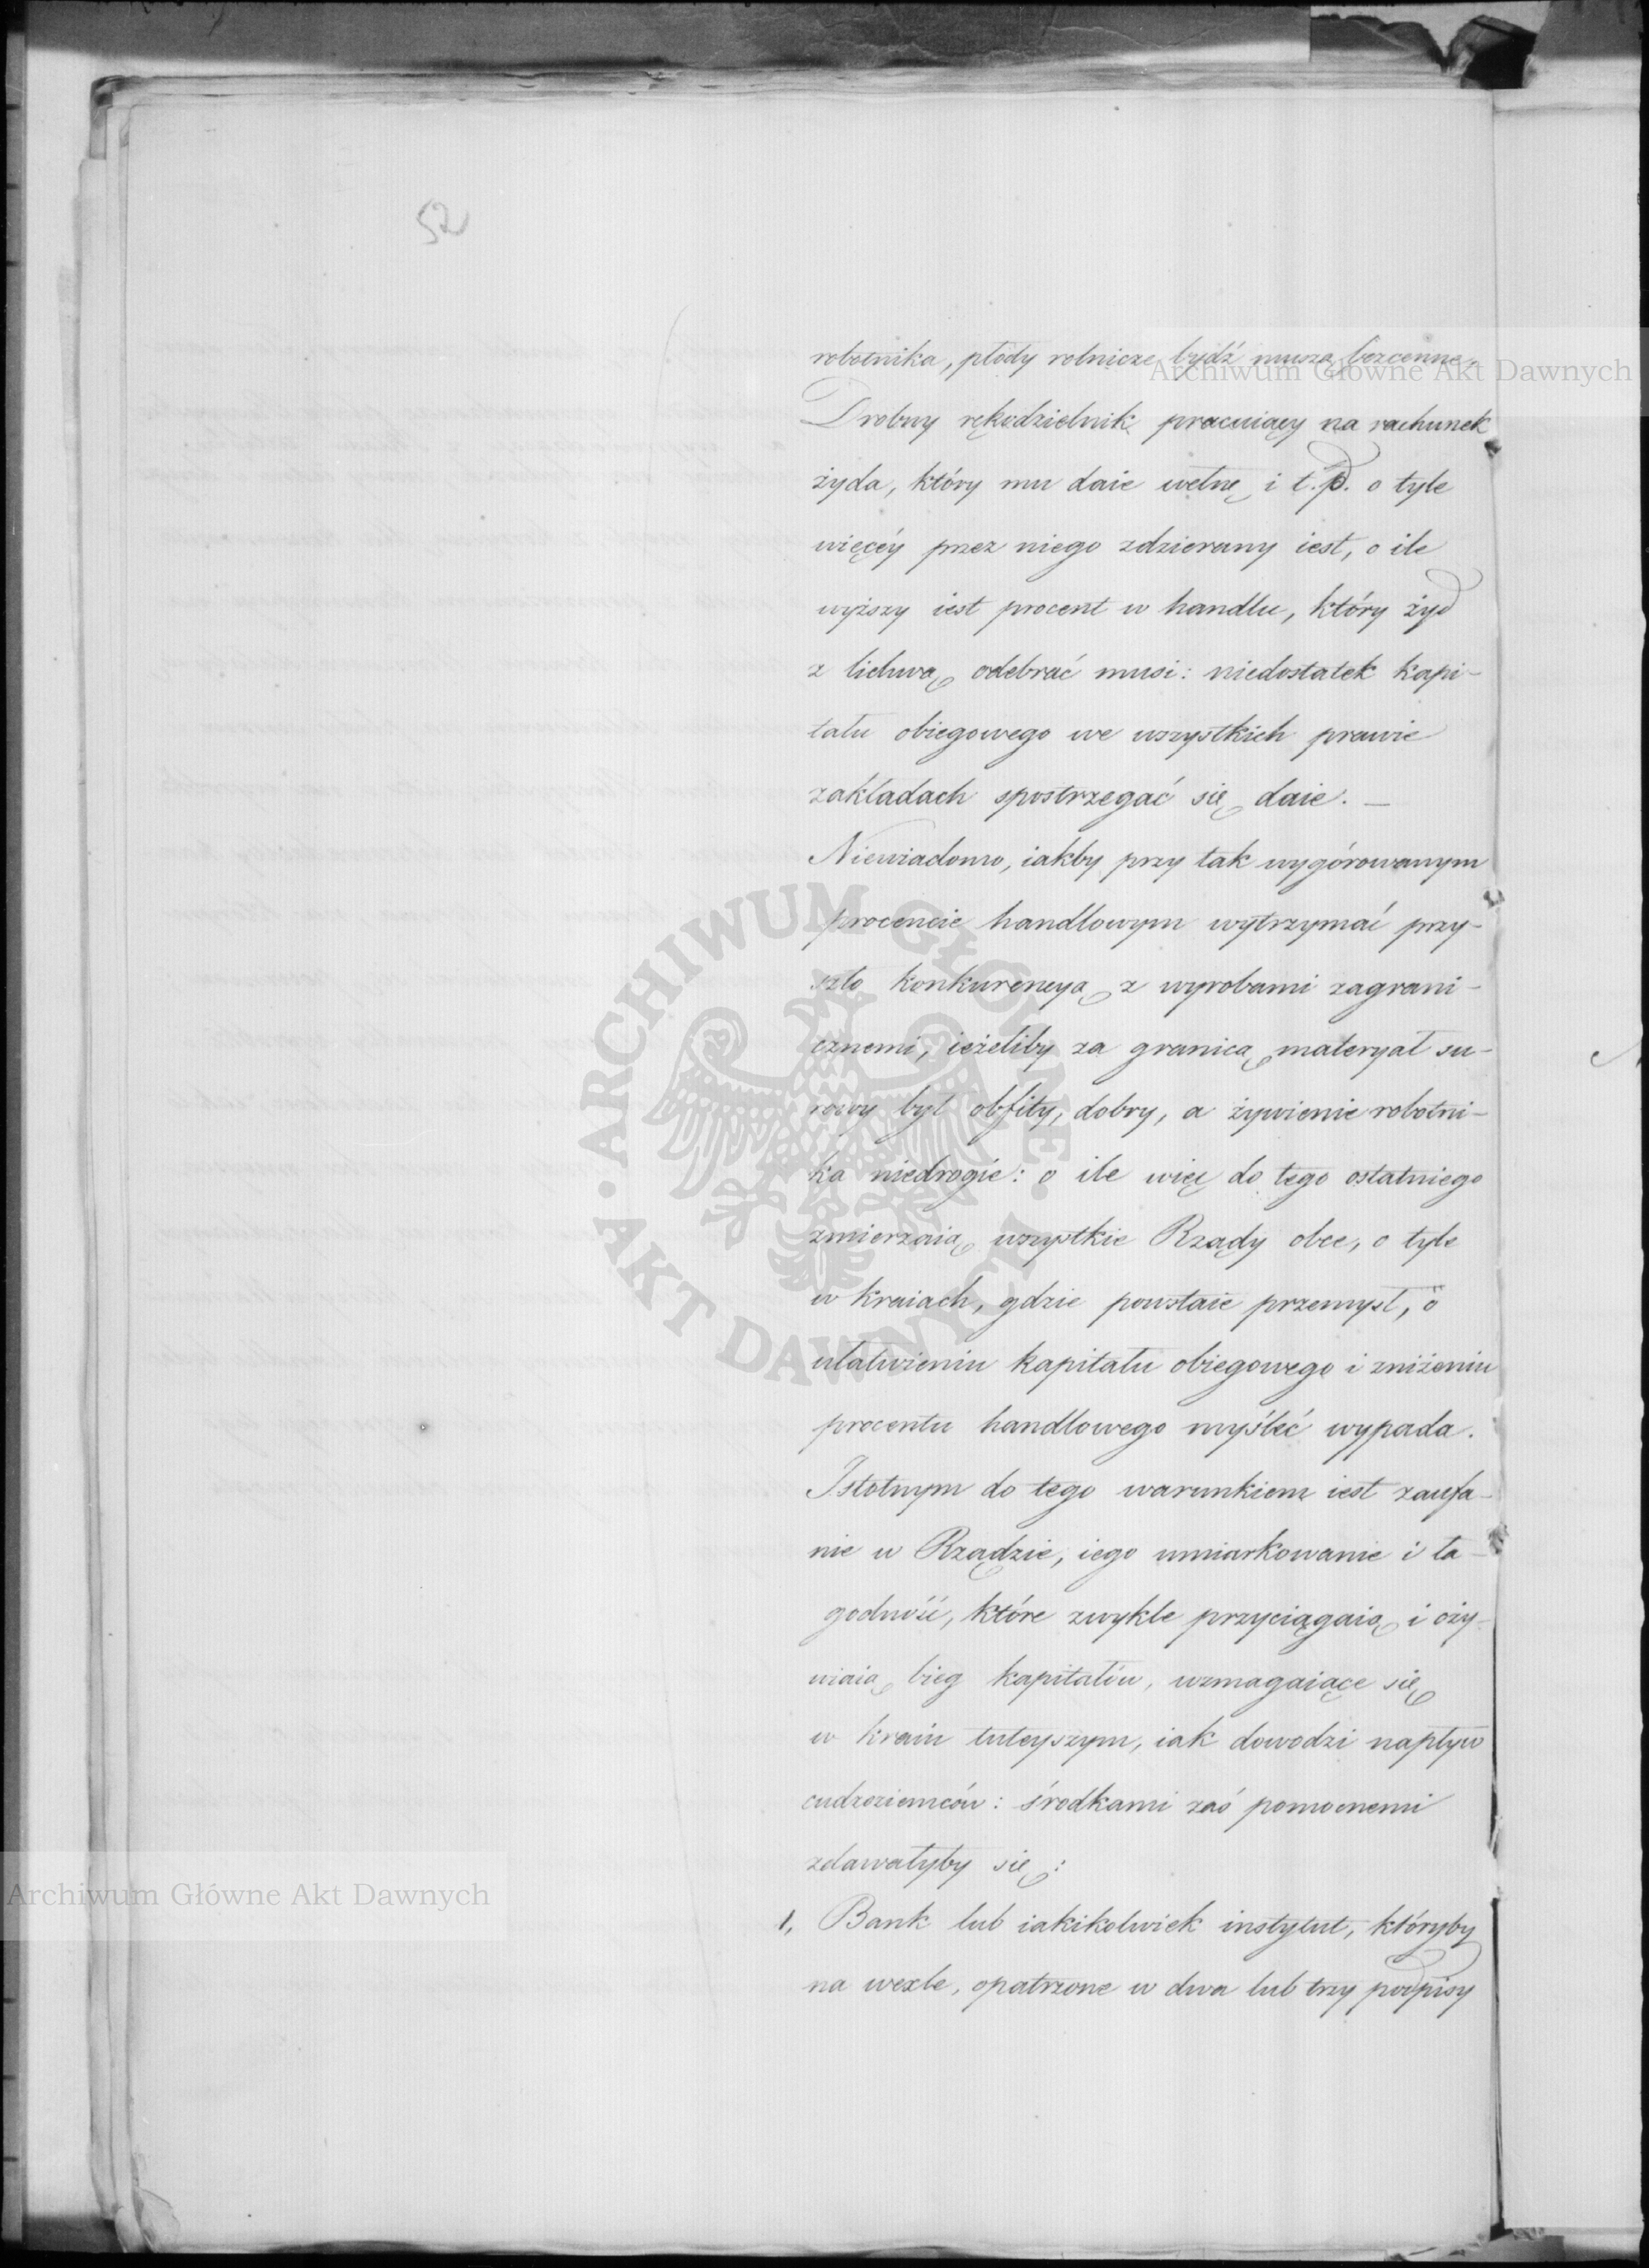 52
robotnika, płody rolnicze bydź muszą bezcenne.
Drobny rękodzielnik pracuiący na rachunek
żyda, który mu daie wełnę i t. p. o tyle
więcéy przez niego zdzierany iest, o ile
wyższy iest procent w handlu, który żyd
z lichwą odebrać musi: niedostatek kapi-
tału obiegowego we wszystkich prawie
zakładach spostrzegać się daie. —
Niewiadomo, iakby przy tak wygórowanym
procencie handlowym wytrzymać przy-
szło konkurencyą z wyrobami zagrani-
cznemi, ieżeliby za granicą materyał su-
rowy był obfity, dobry, a żywienie robotni-
ka niedrogie: o ile więc do tego ostatniego
zmierzaią wszystkie Rządy obce, o tyle
w kraiach, gdzie powstaie przemysł, o
ułatwieniu kapitału obiegowego i zniżeniu
procentu handlowego myśleć wypada.
Istotnym do tego warunkiem iest zaufa-
nie w Rządzie, iego umiarkowanie i ła-
godność, które zwykle przyciągaią i oży-
wiaią bieg kapitałów, wzmagaiące się
w kraiu tuteyszym, iak dowodzi napływ
cudzoziemców: środkami zaś pomocnemi
zdawałyby się:
1, Bank lub iakikolwiek instytut, któryby
na wexle, opatrzone w dwa lub trzy podpisy
Archiwum Główne Akt Dawnych
Archiwum Główne Akt Dawnych
ARCHIWUM GŁÓWNE AKT DAWNYCH